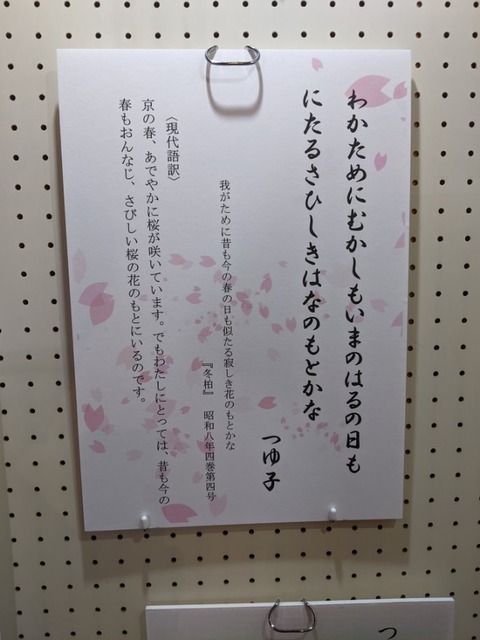 わかためにむかしもいまのはるの日も
にたるさひしきはなのもとかな
つゆ子
我がために昔も今の春の日も似たる寂しき花のもとかな
『冬柏』 昭和八年四巻第四号
〈現代語訳〉
京の春、あでやかに桜が咲いています。でもわたしにとっては、昔も今の
春もおんなじ、さびしい桜の花のもとにいるのです。
つ